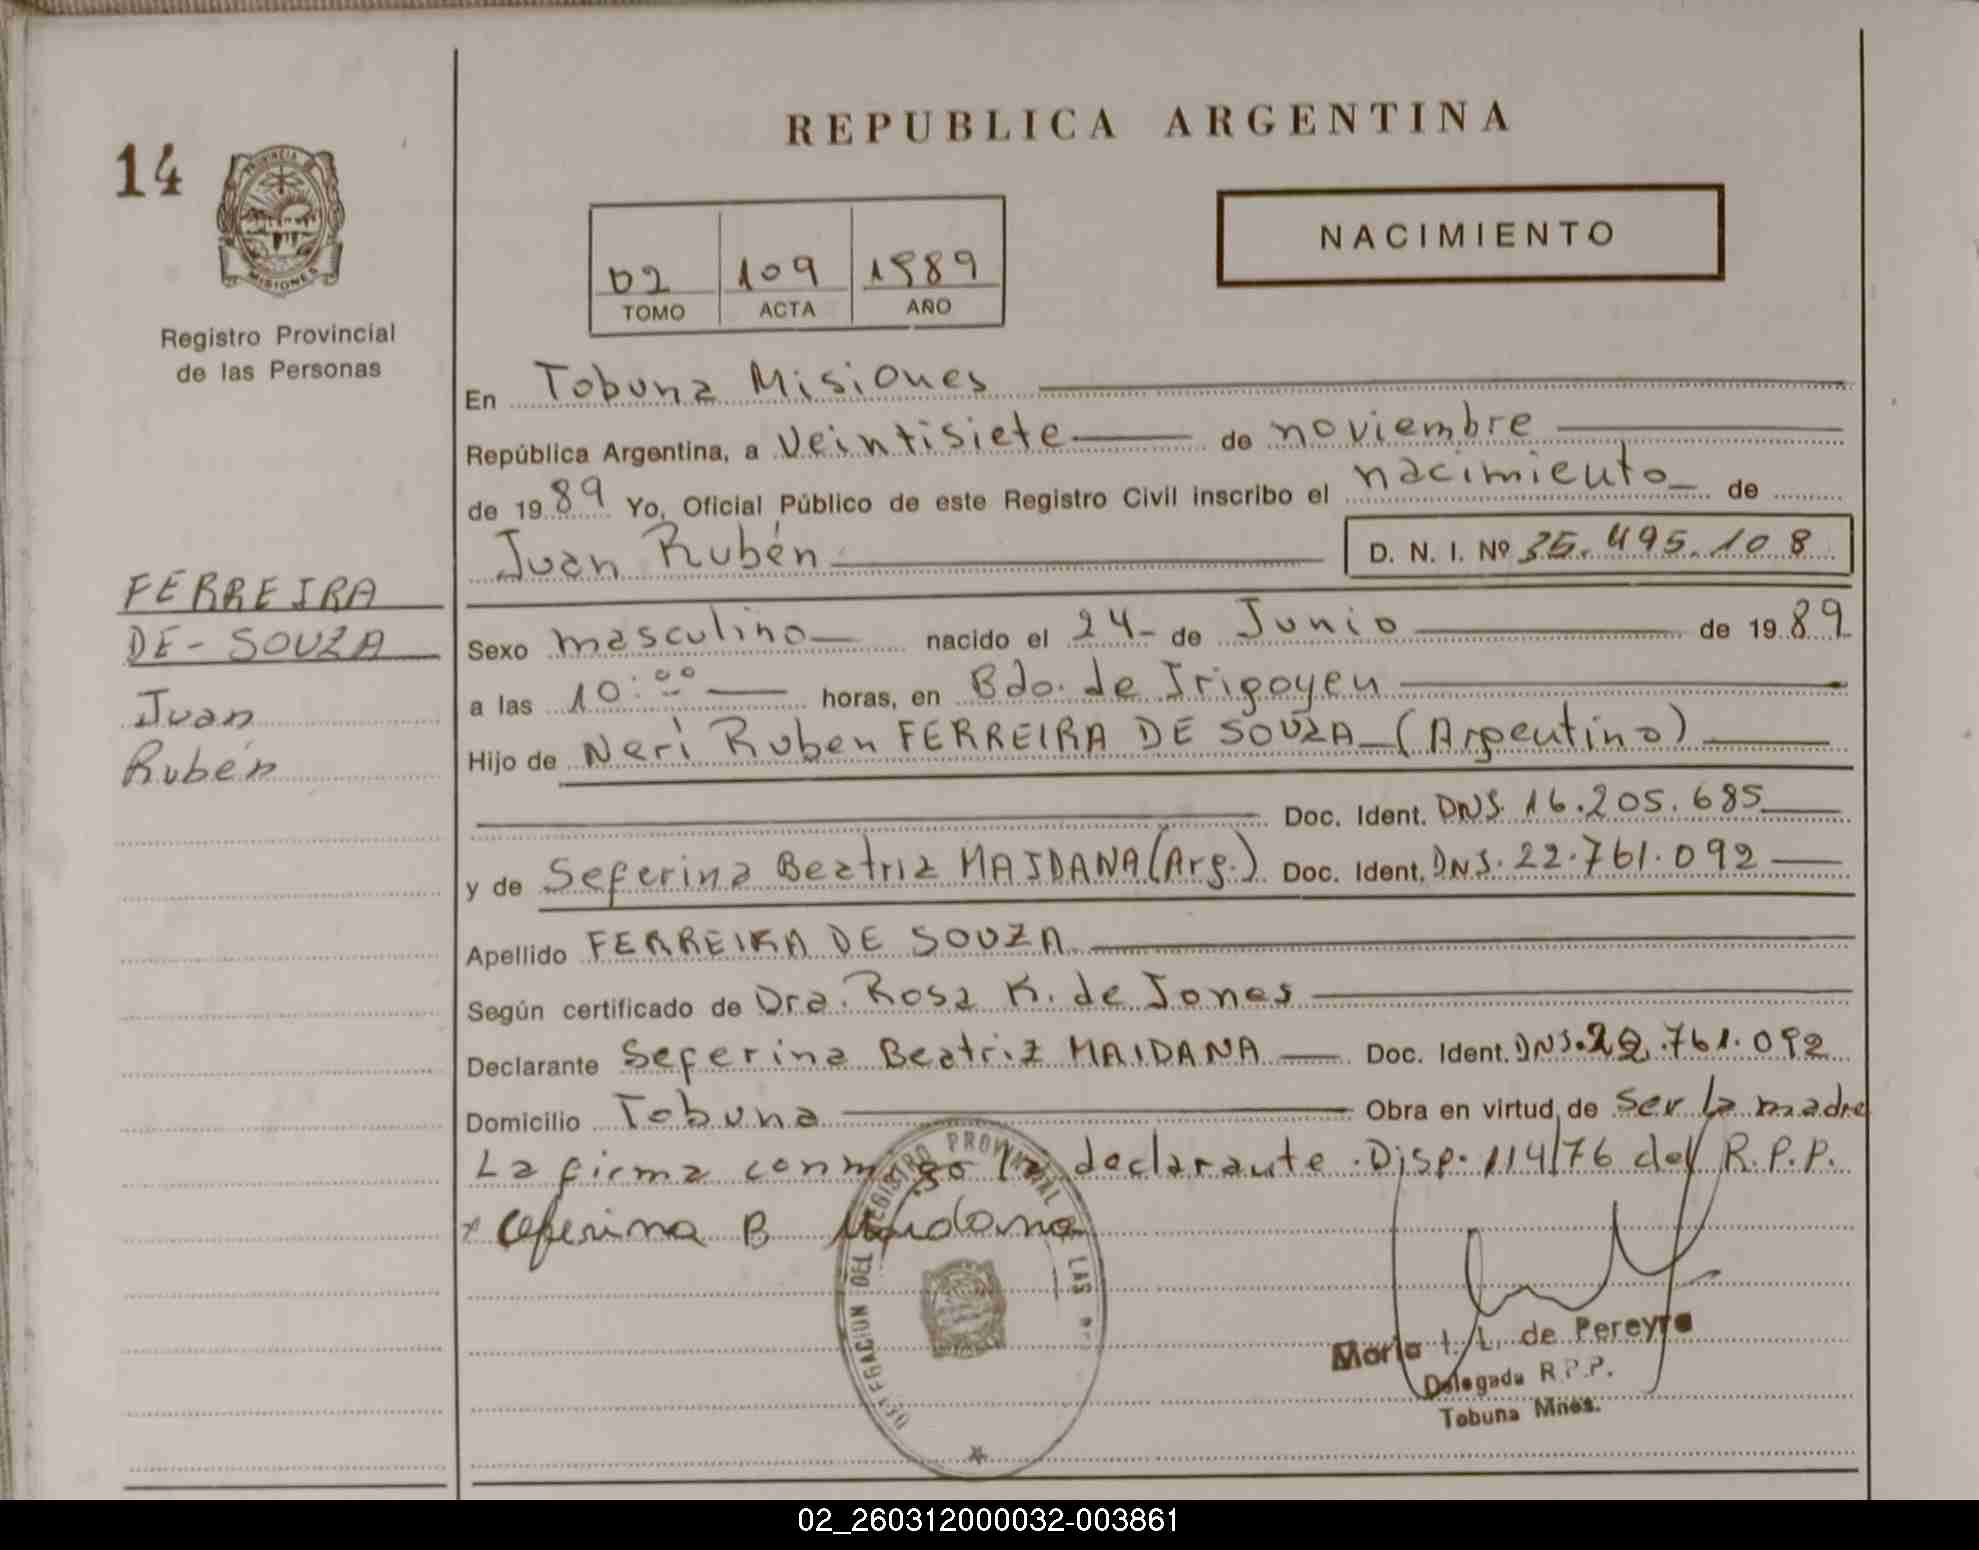 REPUBLICA ARGENTINA
14
PROVINCIA DE
MISIONES
Registro Provincial
de las Personas
NACIMIENTO
02 109 1989
TOMO ACTA AÑO
En Tobuna Misiones
República Argentina, a Veintisiete de noviembre
de 1989 Yo, Oficial Público de este Registro Civil inscribo el nacimiento de
Juan Rubén D. N. I. Nº 35.495.108
FERREIRA
DE-SOUZA
Juan
Rubén
Sexo masculino nacido el 24- de Junio de 1989
a las 10:00 horas, en Bdo. de Irigoyen
Hijo de Neri Ruben FERREIRA DE SOUZA (Argentino)
Doc. Ident. DNI. 16.205.685
y de Seferina Beatriz MAIDANA (Arg.) Doc. Ident. DNI. 22.761.092
Apellido FERREIRA DE SOUZA
Según certificado de Dra. Rosa K. de Jones
Declarante Seferina Beatriz MAIDANA Doc. Ident. DNI. 22.761.092
Domicilio Tobuna Obra en virtud de ser la madre
La firma conmigo la declarante. Disp. 114/76 del R.P.P.
x Ceferina B Maidana
DELEGACION DEL REGISTRO PROVINCIAL LAS
Maria I. L. de Pereyra
Delegada R.P.P.
Tobuna Mnes.
02_260312000032-003861